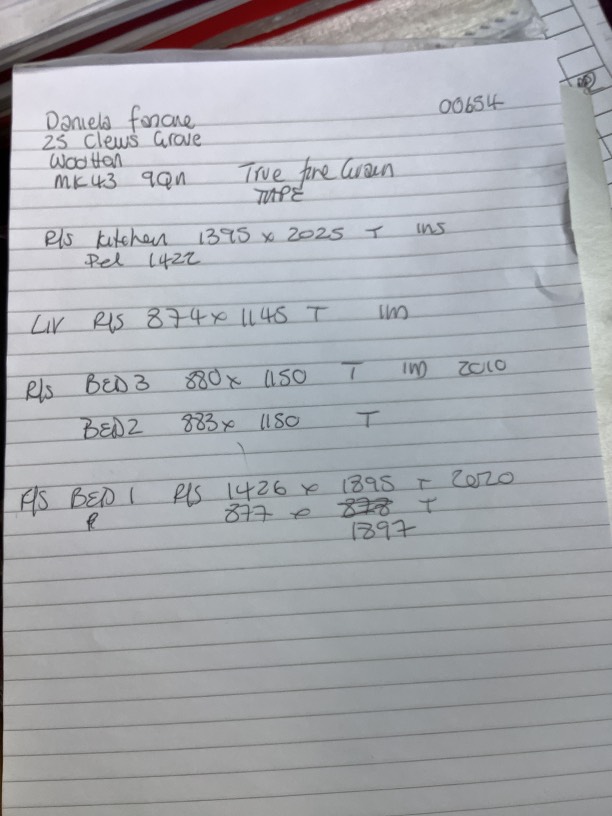 00654
Daniela Fancne
25 Clews Grove
Wootton
MK43 9QN True fire Grain
TAPE
R/S Kitchen 1395 x 2025 T INS
Del 1422
Liv R/S 874 x 1145 T IM
R/S BED 3 880 x 1150 T IM 2010
BED 2 883 x 1150 T
F/S BED 1 R/S 1426 x 1895 T 2020
877 x T
1897